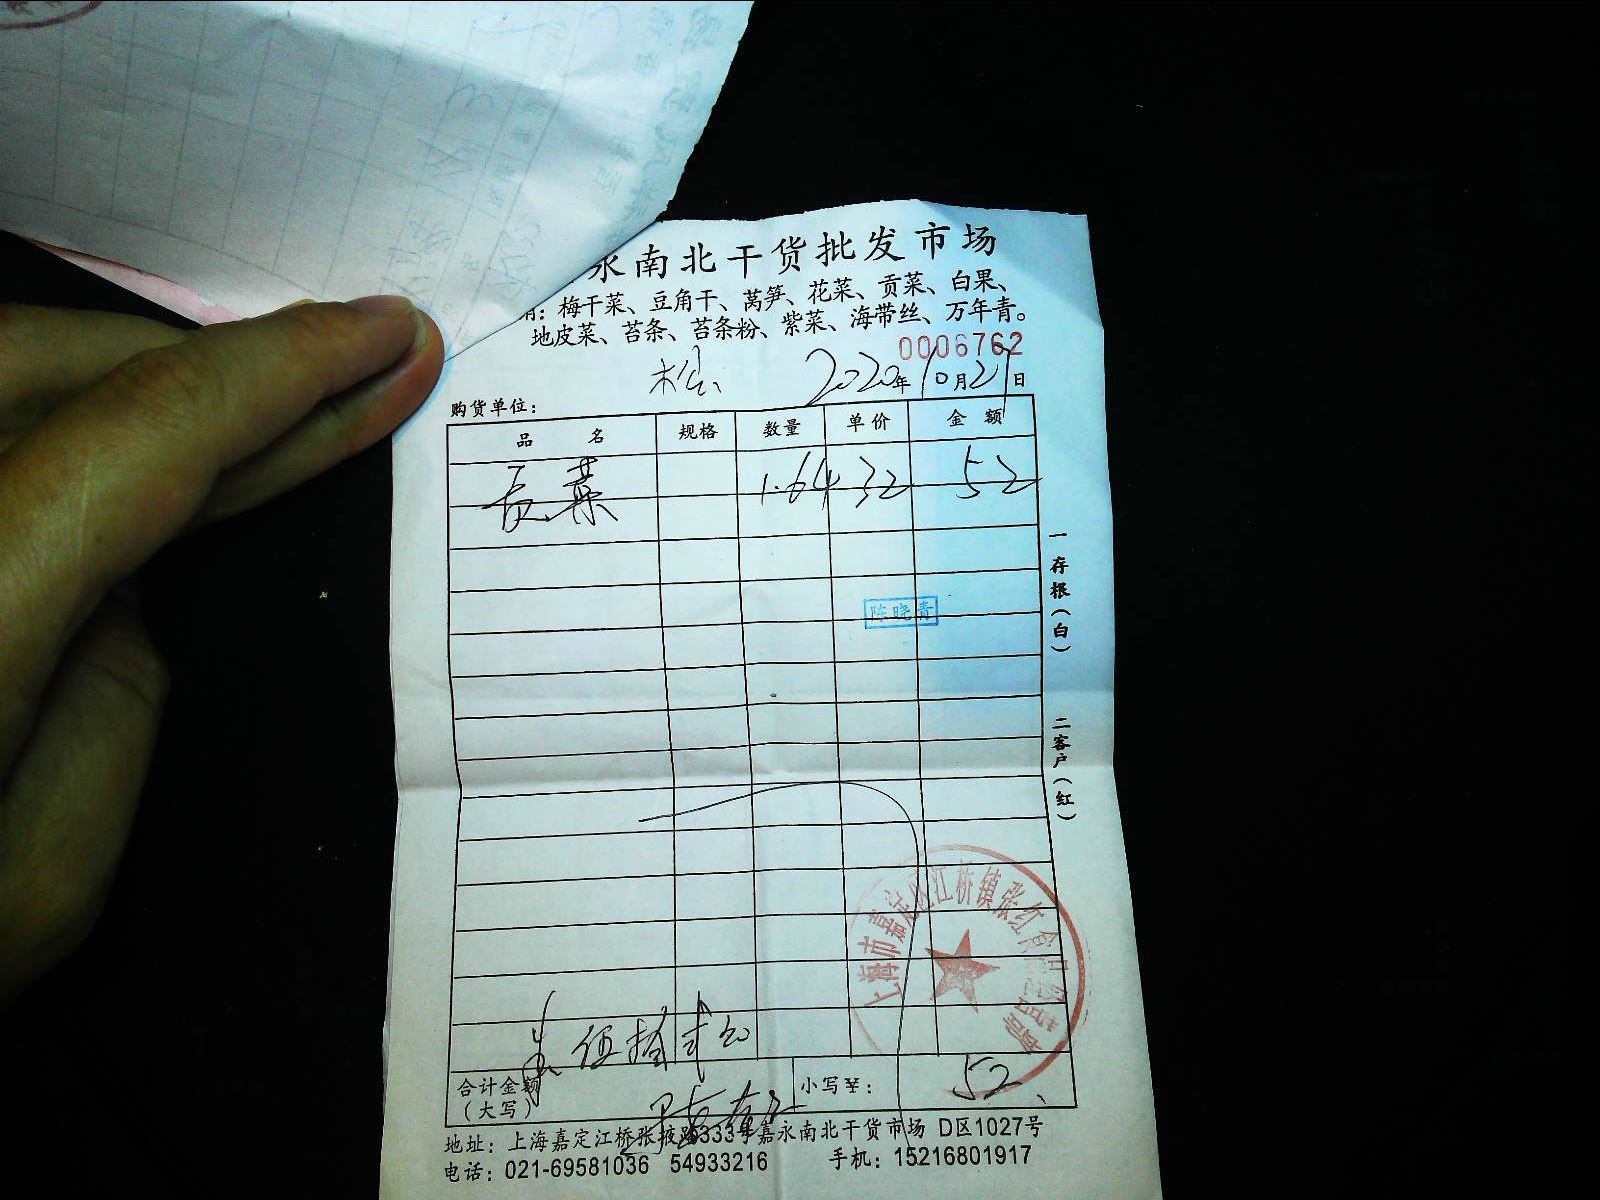 永南北干货批发市场
梅干菜、豆角干、莴笋、花菜、贡菜、白果、
地皮菜、苔条、苔条粉、紫菜、海带丝、万年青。
0006762
2020年10月21日
购货单位：
品 名 规格 数量 单价 金 额
贡菜 1.64 32 52
一存根（白）
陈晓青
二客户（红）
上海市嘉定区江桥镇张红食品经营
伍拾贰
合计金额
（大写） 小写￥： 52
地址：上海嘉定江桥张掖路333号嘉永南北干货市场 D区1027号
电话：021-69581036 54933216 手机：15216801917